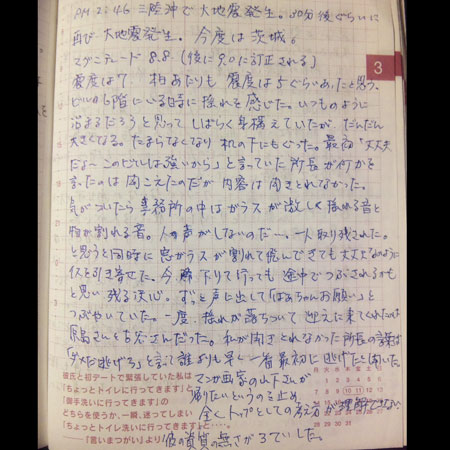 PM 2:46 三陸沖で大地震発生。30分後ぐらいに
再び大地震発生。今度は茨城。
マグニチュード8.8.(後に9.0に訂正される)
震度は7、柏あたりも震度は5ぐらいあったと思う。
ビルの6階にいる時に揺れを感じた。いつものように
治まるだろうと思ってしばらく身構えていたが、だんだん
大きくなる。たまらなくなり机の下にもぐった。最初「大丈夫
だよ〜このビルは強いから」と言っていた所長が何かを
言ったのは聞こえたのだが内容は聞きとれなかった。
気がついたら事務所の中はガラスが激しく揺れる音と
物が割れる音。人の声がしないのだ…。一人取り残された。
と思うと同時に窓ガラスが割れて飛んできても大丈夫なように
イスを引き寄せた。今 下りて行っても途中でつぶされるかも
と思い残る決心。ずっと声に出して「ばあちゃんお願い」と
つぶやいていた。一度、揺れが落ちついて迎えに来てくれたのは
さんと古谷さんだった。私が聞きとれなかった所長の言葉は
「ダメだ逃げろ」と言って誰よりも早く一番最初に逃げたと聞いた。
マンガ画家の山下さんが
帰りたいというのを止め
全くトップとしての考え方が理解できない
彼の資質の無さがろていした。
3
彼氏と初デートで緊張していた私は
「ちょっとトイレに行ってきます」と
「御手洗いに行ってきます」の
どちらを使うか、一瞬、迷ってしまい
「ちょっとトイレ洗いに行ってきます」と…。
──『言いまつがい』より
月 火 水 木 金 土 日